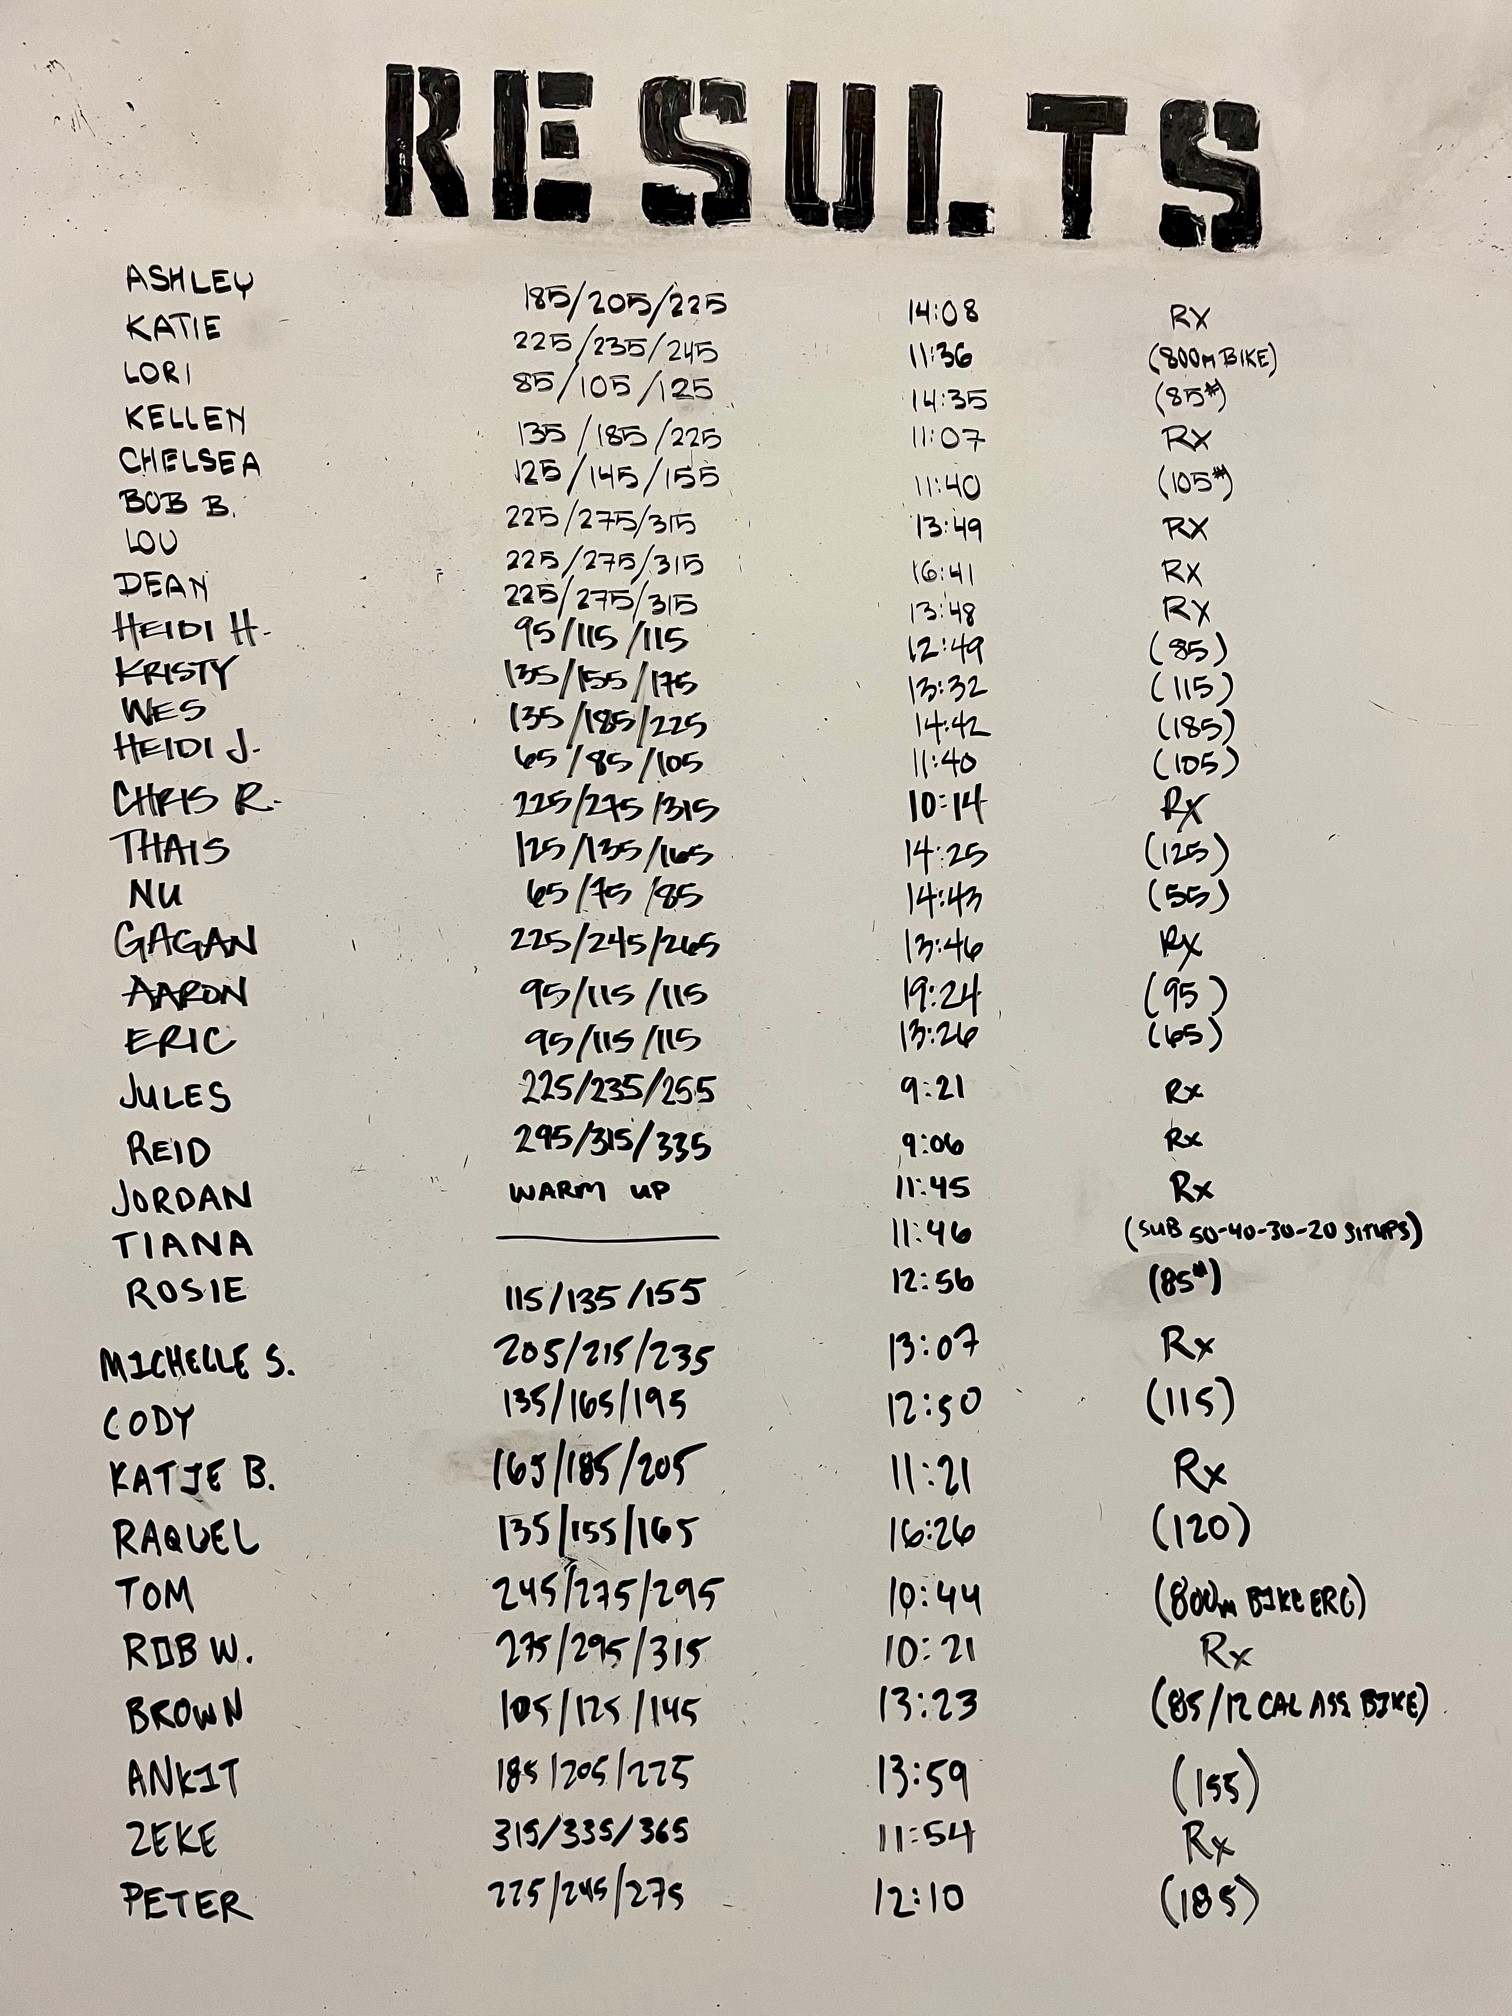 RESULTS
ASHLEY 185/205/225 14:08 RX
KATIE 225/235/245 11:36 (800M BIKE)
LORI 85/105/125 14:35 (85#)
KELLEN 135/185/225 11:07 RX
CHELSEA 125/145/155 11:40 (105#)
BOB B. 225/275/315 13:49 RX
LOU 225/275/315 16:41 RX
DEAN 225/275/315 13:48 RX
HEIDI H. 95/115/115 12:49 (85)
KRISTY 135/155/175 13:32 (115)
WES 135/185/225 14:42 (185)
HEIDI J. 65/85/105 11:40 (105)
CHRIS R. 225/275/315 10:14 Rx
THAIS 125/135/165 14:25 (125)
NU 65/75/85 14:43 (55)
GAGAN 225/245/265 13:46 Rx
AARON 95/115/115 19:24 (95)
ERIC 95/115/115 13:26 (65)
JULES 225/235/255 9:21 Rx
REID 295/315/335 9:06 Rx
JORDAN WARM UP 11:45 Rx
TIANA —— 11:46 (SUB 50-40-30-20 SITUPS)
ROSIE 115/135/155 12:56 (85#)
MICHELLE S. 205/215/235 13:07 Rx
CODY 135/165/195 12:50 (115)
KATIE B. 165/185/205 11:21 Rx
RAQUEL 135/155/165 16:26 (120)
TOM 245/275/295 10:44 (800m BIKE ERG)
ROB W. 275/295/315 10:21 Rx
BROWN 105/125/145 13:23 (85/12 CAL ASS BIKE)
ANKIT 185/205/225 13:59 (155)
ZEKE 315/335/365 11:54 Rx
PETER 225/245/275 12:10 (185)